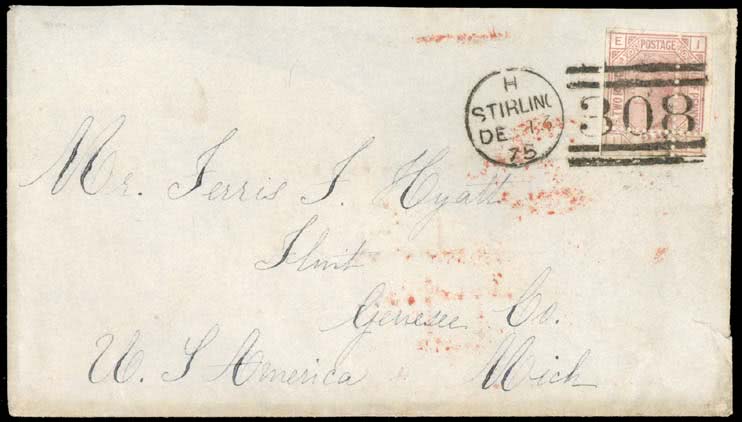 E POSTAGE I
TWO
308
H
STIRLING
DE 13
75
Mr. Ferris F. Hyatt
Flint
Genesee Co.
U. S America Mich